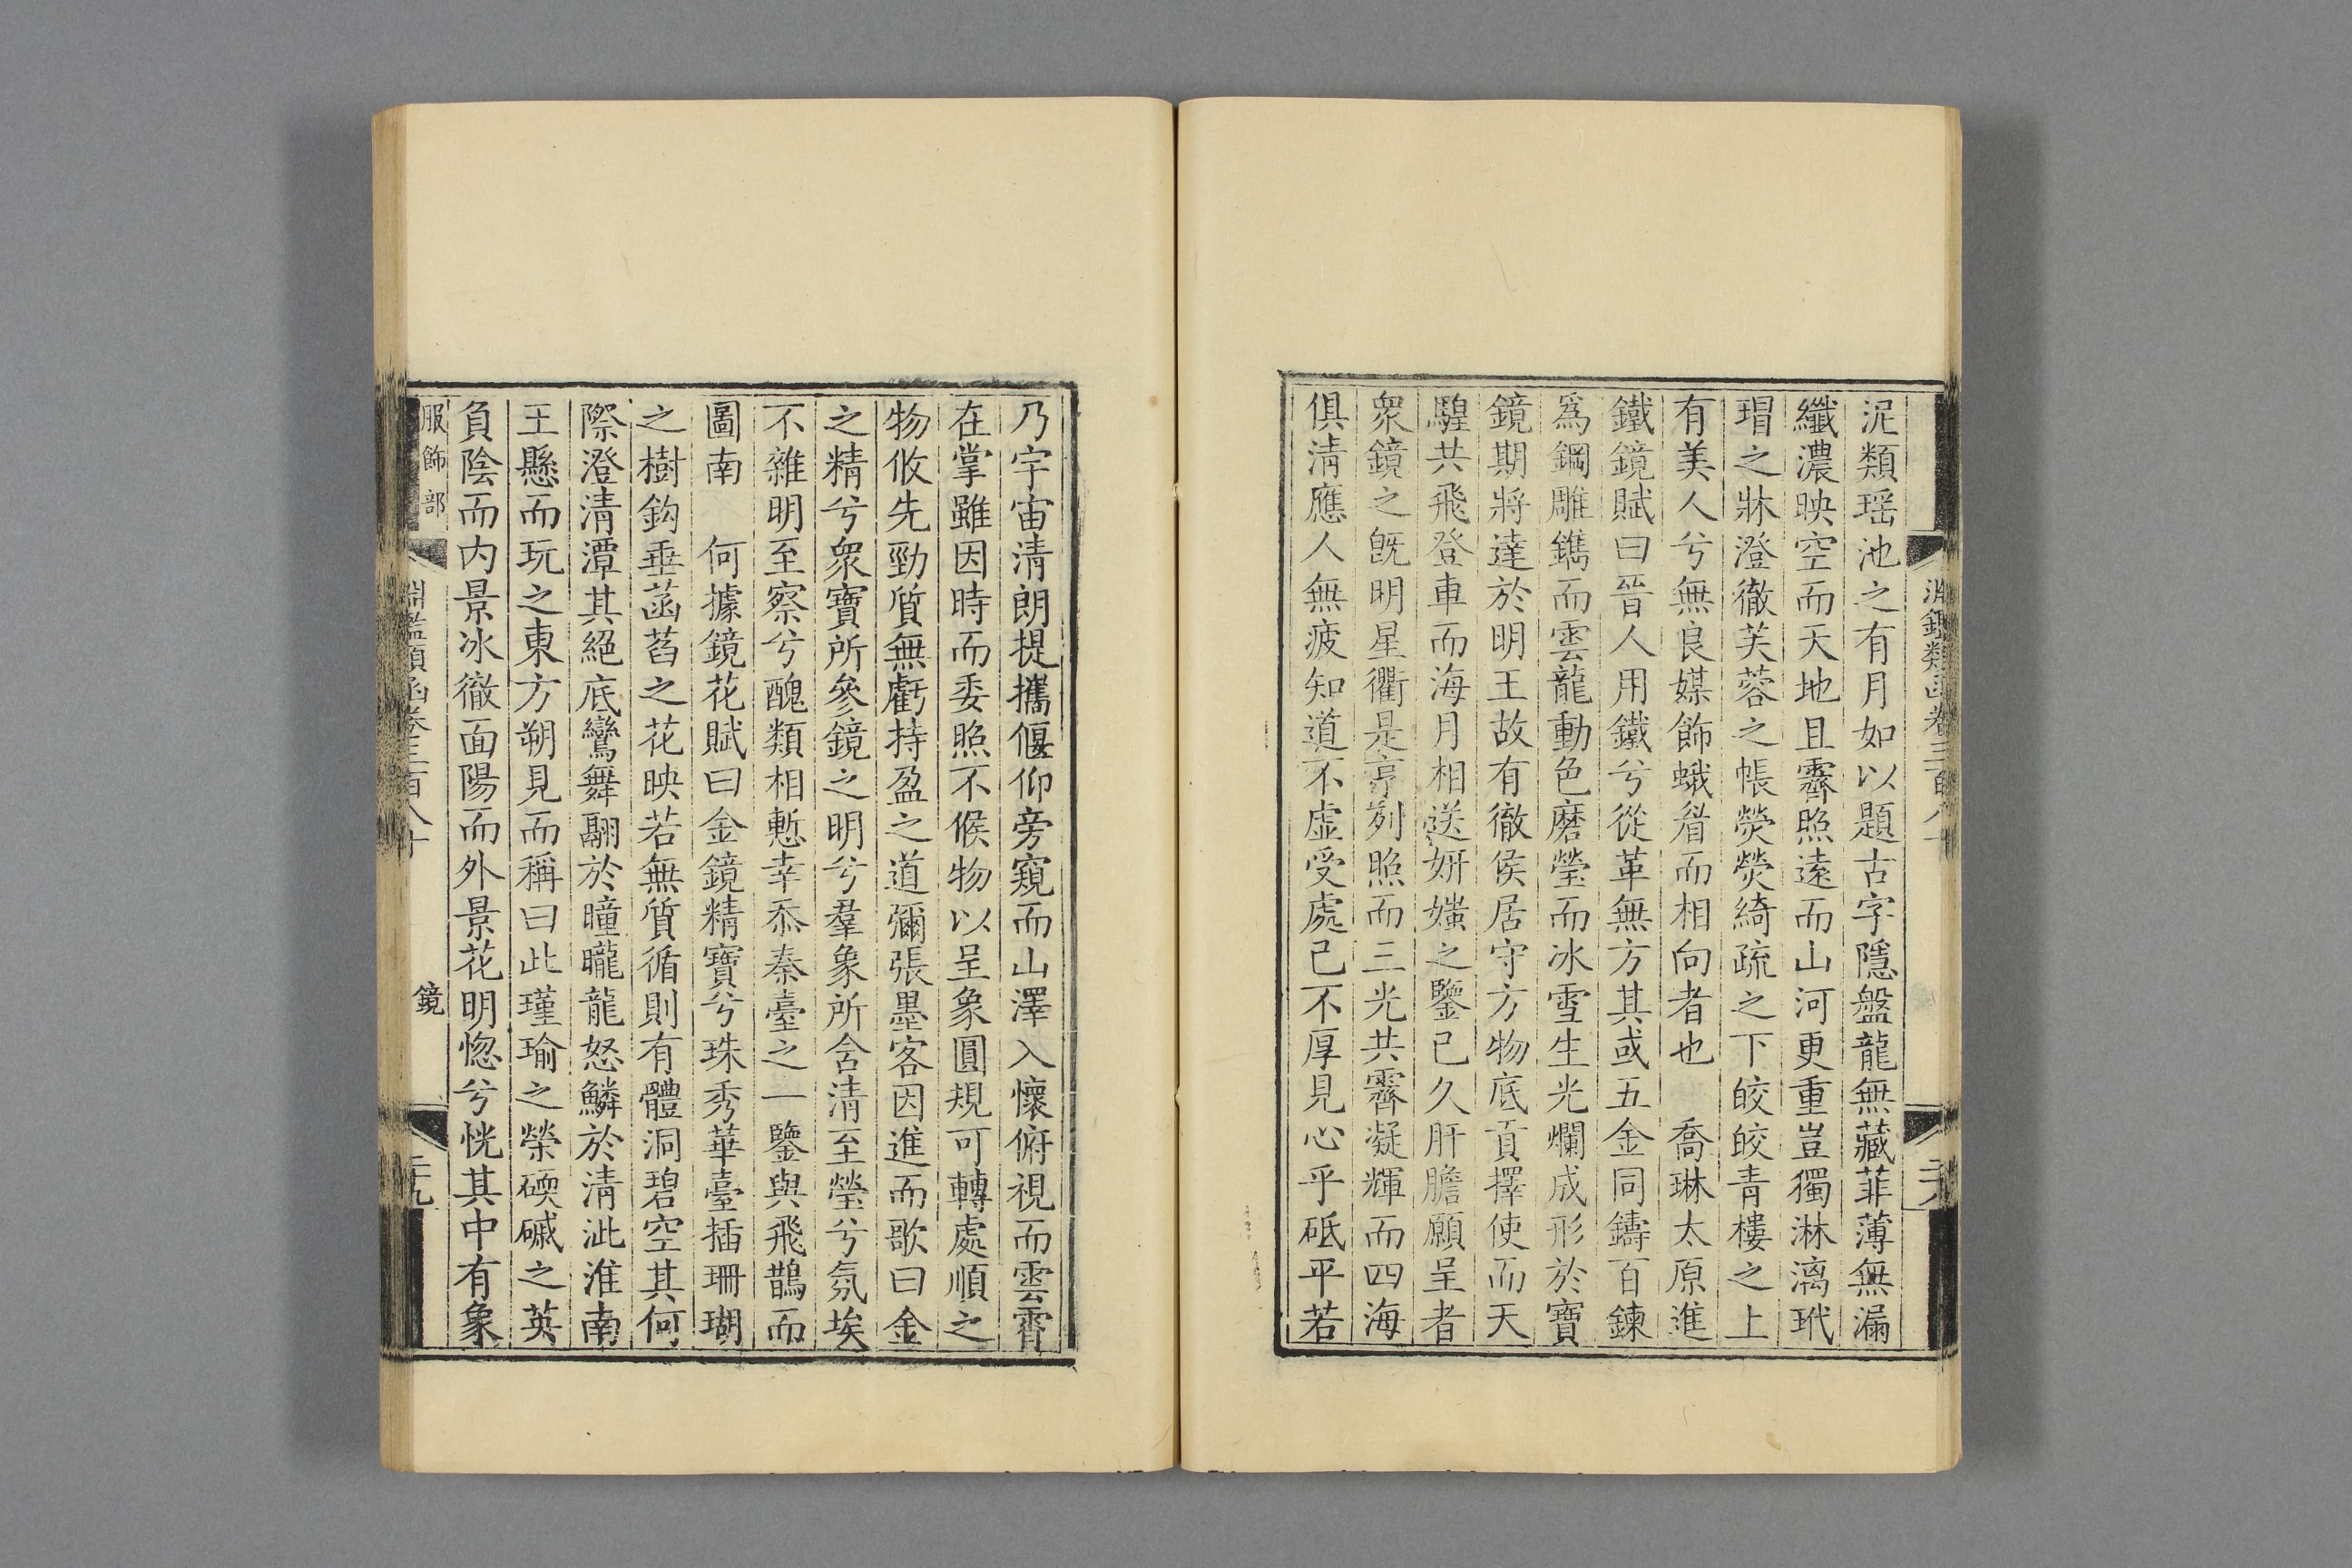 泥類瑶池之有月如以題古字隱盤龍無藏菲薄無漏
纖濃映空而天地且霽照遠而山河更重豈獨淋漓玳
瑁之牀澄徹芙蓉之帳熒熒綺疏之下皎皎青樓之上
有美人兮無良媒飾蛾眉而相向者也　喬琳太原進
鐵鏡賦曰晉人用鐵兮從革無方其或五金同鑄百鍊
爲鋼雕鐫而雲龍動色磨瑩而冰雪生光爛成形於寶
鏡期將達於明王故有徹侯居守方物底貢擇使而天
騜共飛登車而海月相送妍媸之鑒已久肝膽願呈者
衆鏡之既明星衢是亨列照而三光共霽凝輝而四海
俱清應人無疲知道不虚受處已不厚見心乎砥平若
淵鑑類函卷三百八十
二十八
乃宇宙清朗提攜偃仰旁窺而山澤入懷俯視而雲霄
在掌雖因時而委照不候物以呈象圓規可轉處順之
物攸先勁質無虧持盈之道彌張墨客因進而歌曰金
之精兮衆寶所參鏡之明兮羣象所含清至瑩兮氛埃
不雜明至察兮醜類相慙幸忝秦臺之一鑒與飛鵲而
圖南　何據鏡花賦曰金鏡精寶兮珠秀華臺插珊瑚
之樹鈎垂菡萏之花映若無質循則有體洞碧空其何
際澄清潭其絕底鸞舞翮於曈曨龍怒鱗於清泚淮南
王懸而玩之東方朔見而稱曰此瑾瑜之榮碝磩之英
負陰而内景冰徹面陽而外景花明惚兮恍其中有象
服飾部
淵鑑類函卷三百八十
鏡
二十九